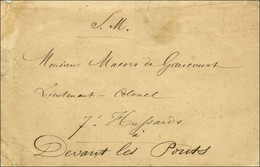 S. M.
Monsieur Macors de Gaucourt
Lieutenant-Colonel
7e Hussards
à
Devant les Ponts